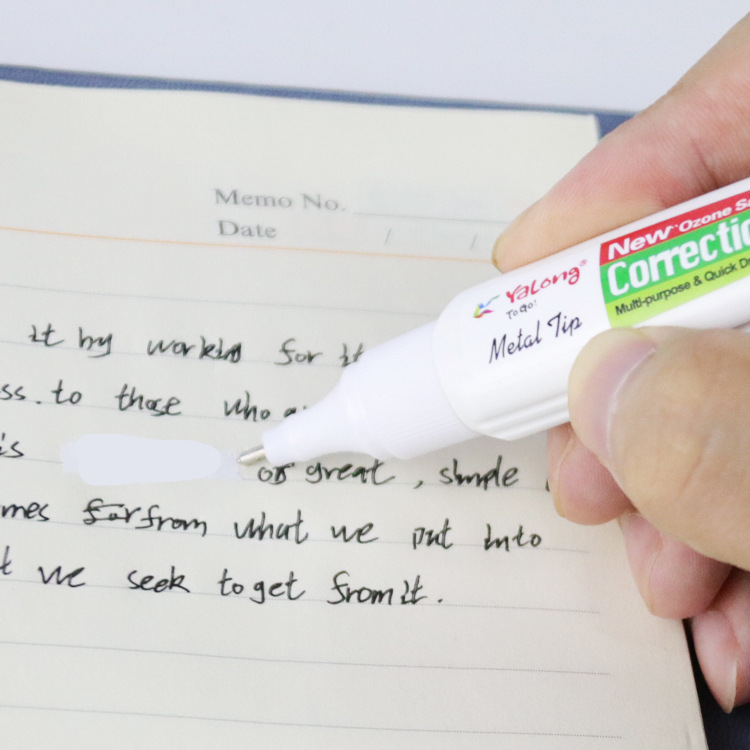 Memo No.
Date / /
it by working for it
ss. to those who a
is or great, simple
mes far from what we put into
t we seek to get from it.
YaLong®
To Go!
Metal Tip
New Ozone Sa
Correctio
Multi-purpose & Quick Dr